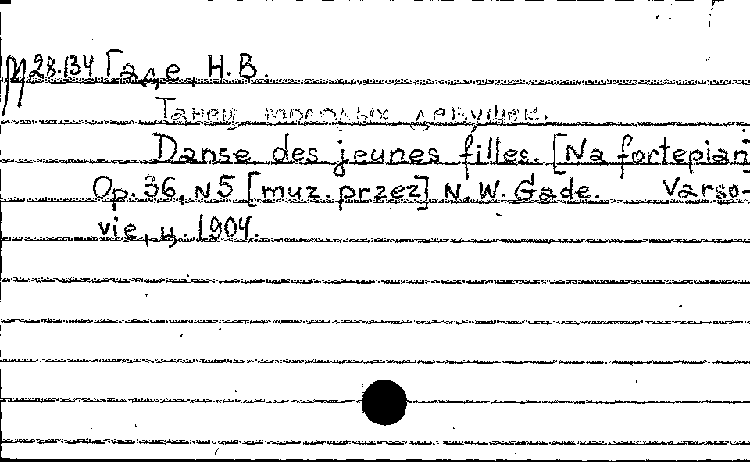 М 28.134 Гаде, Н.В.
Танец молодых девушек.
Danse des jeunes filles. [Na fortepian]
Op. 36, N5 [muz. przez] N.W. Gade. Varso-
vie, ц. 1904.